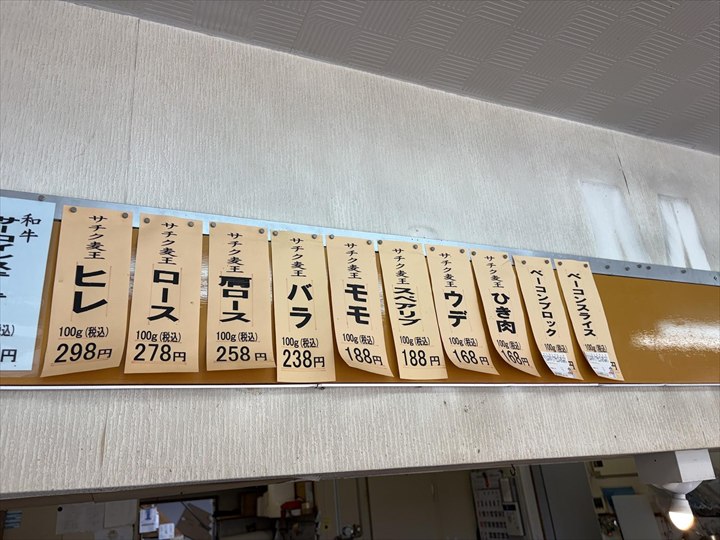 和牛
サチク麦王
ヒレ
100g(税込)
298円
サチク麦王
ロース
100g(税込)
278円
サチク麦王
肩ロース
100g(税込)
258円
サチク麦王
バラ
100g(税込)
238円
サチク麦王
モモ
100g(税込)
188円
サチク麦王
スペアリブ
100g(税込)
188円
サチク麦王
ウデ
100g(税込)
168円
サチク麦王
ひき肉
100g(税込)
168円
ベーコンブロック
100g(税込)
ベーコンスライス
100g(税込)